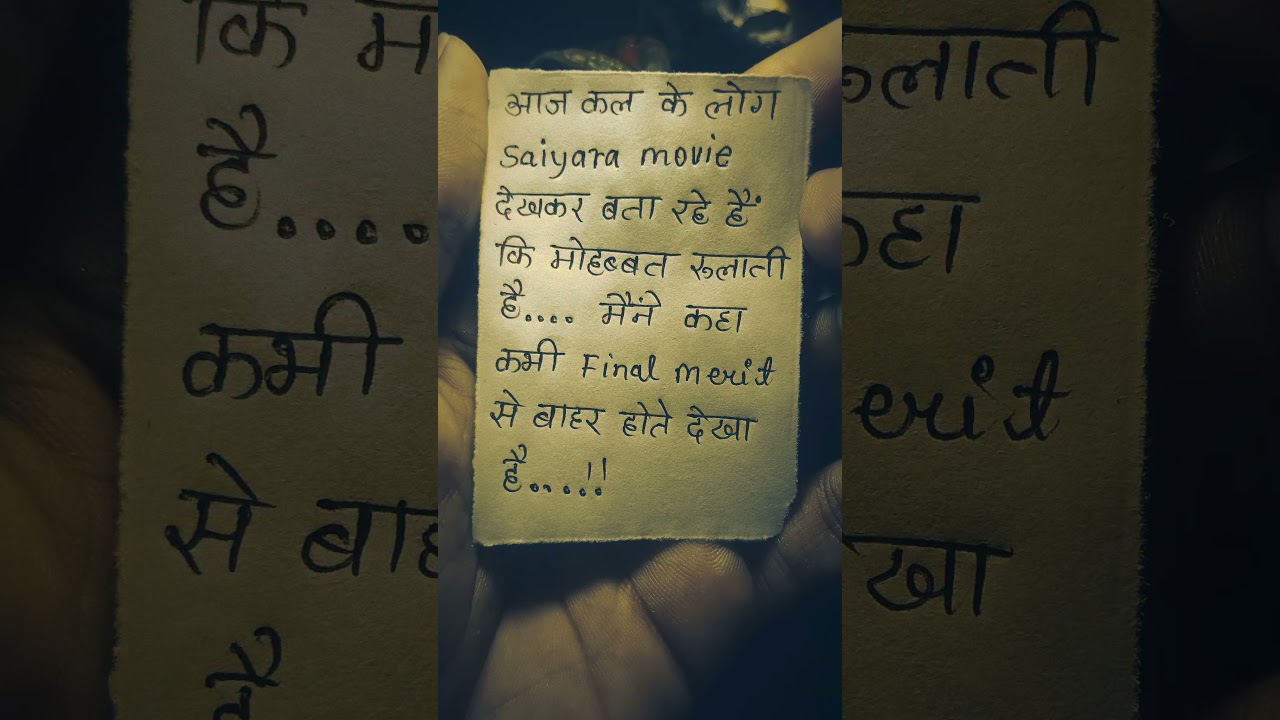 आज कल के लोग
Saiyara movie
देखकर बता रहे हैं
कि मोहब्बत रूलाती
है.... मैंने कहा
कभी Final merit
से बाहर होते देखा
है.....!!